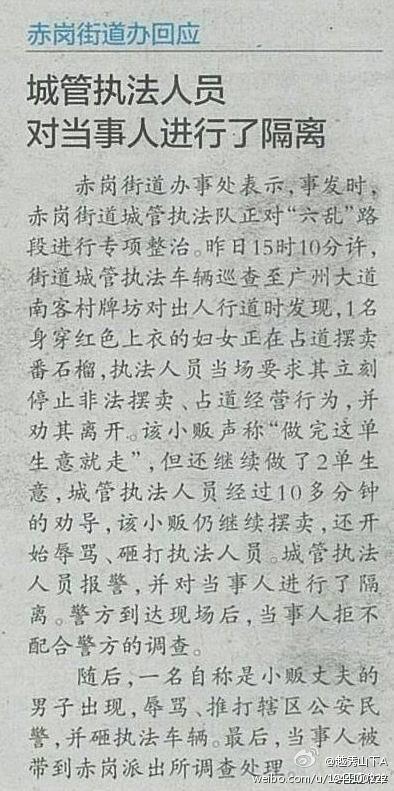 赤岗街道办回应
城管执法人员
对当事人进行了隔离
赤岗街道办事处表示,事发时,
赤岗街道城管执法队正对“六乱”路
段进行专项整治。昨日15时10分许,
街道城管执法车辆巡查至广州大道
南客村牌坊对出人行道时发现,1名
身穿红色上衣的妇女正在占道摆卖
番石榴,执法人员当场要求其立刻
停止非法摆卖、占道经营行为,并
劝其离开。该小贩声称“做完这单
生意就走”,但还继续做了2单生
意,城管执法人员经过10多分钟
的劝导,该小贩仍继续摆卖,还开
始辱骂、砸打执法人员。城管执法
人员报警,并对当事人进行了隔
离。警方到达现场后,当事人拒不
配合警方的调查。
随后,一名自称是小贩丈夫的
男子出现,辱骂、推打辖区公安民
警,并砸执法车辆。最后,当事人被
带到赤岗派出所调查处理。
@越秀山下A
weibo.com/u/